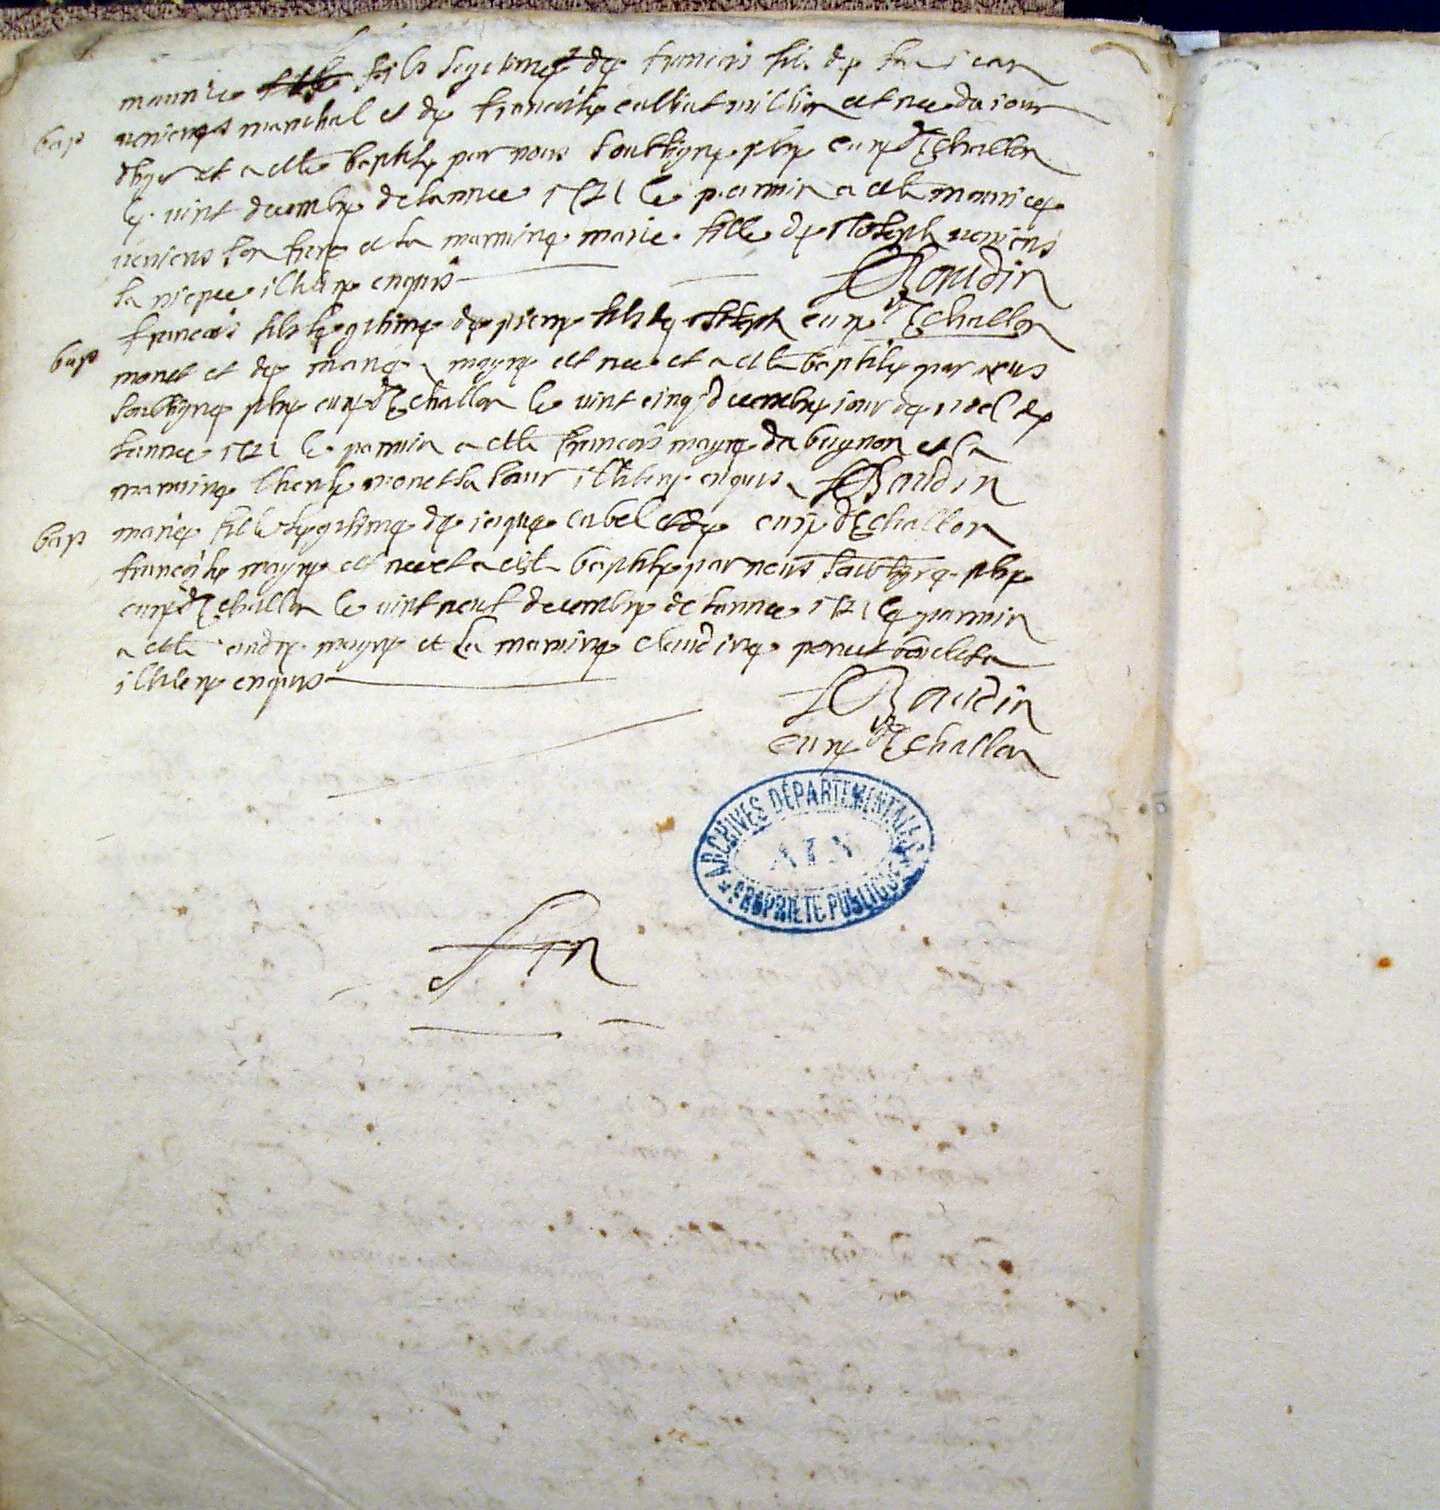 maurice fils legitime de francois fils de feu iean
bap
marechal et de francoise est nee du iour
dhyer et a este baptise par nous soubsigne pbre curé d'Echallon
le vint decembre de lannee 1721 le parrin a esté maurice
son frere et la marrine marie fille de Joseph
sa niepce illitere enquis
Baudin
francois fils legitime de pierre fils de Joseph curé d'Echallon
bap
monet et de mayre est nee et a esté baptise par nous
soubsigne pbre curé d'Echallon le vint cinq decembre iour de noel de
lannee 1721 le parrin a esté francois mayre du bugnon et la
marrine monet sa soeur illitere enquis Baudin
bap
marie fille legitime de iaque et de curé d'Echallon
francoise mayre est nee et a esté baptise par nous soubsigne pbre
curé d'Echallon le vint neuf decembre de lannee 1721 le parrin
a esté andre mayre et la marrine claudine
illitere enquis
Baudin
curé d'Echallon
ARCHIVES DÉPARTEMENTALES
AIN
PROPRIÉTÉ PUBLIQUE
fin